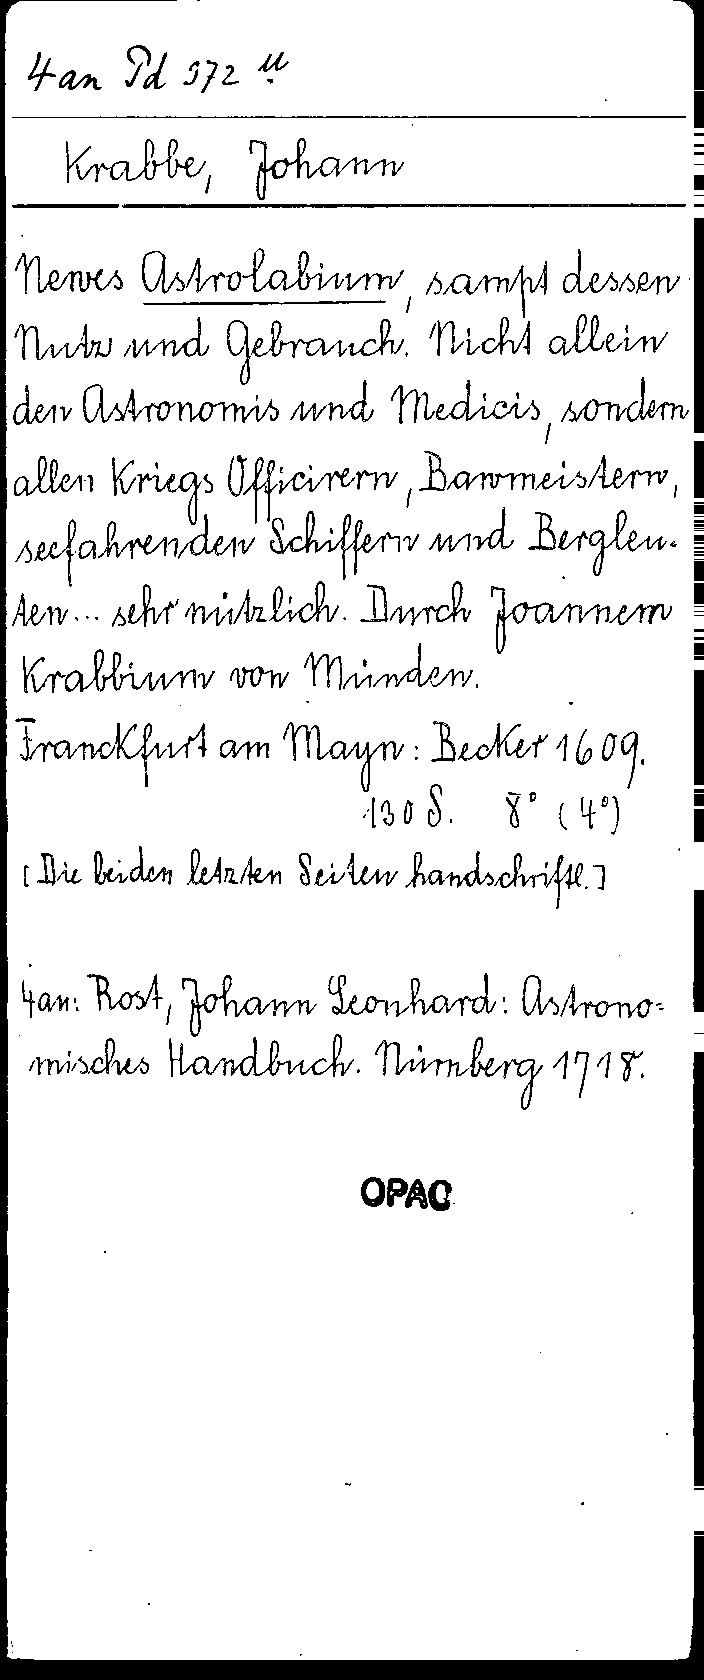 4 an Pd 572 u
Krabbe, Johann
Newes Astrolabium, sampt dessen
Nutz und Gebrauch. Nicht allein
den Astronomis und Medicis, sondern
allen Kriegs Officirern, Bawmeistern,
seefahrenden Schiffern und Bergleu-
ten... sehr nützlich. Durch Joannem
Krabbium von Münden.
Franckfurt am Mayn: Becker 1609.
130 S. 8° (4°)
[Die beiden letzten Seiten handschriftl.]
4an: Rost, Johann Leonhard: Astrono=
misches Handbuch. Nürnberg 1718.
OPAC